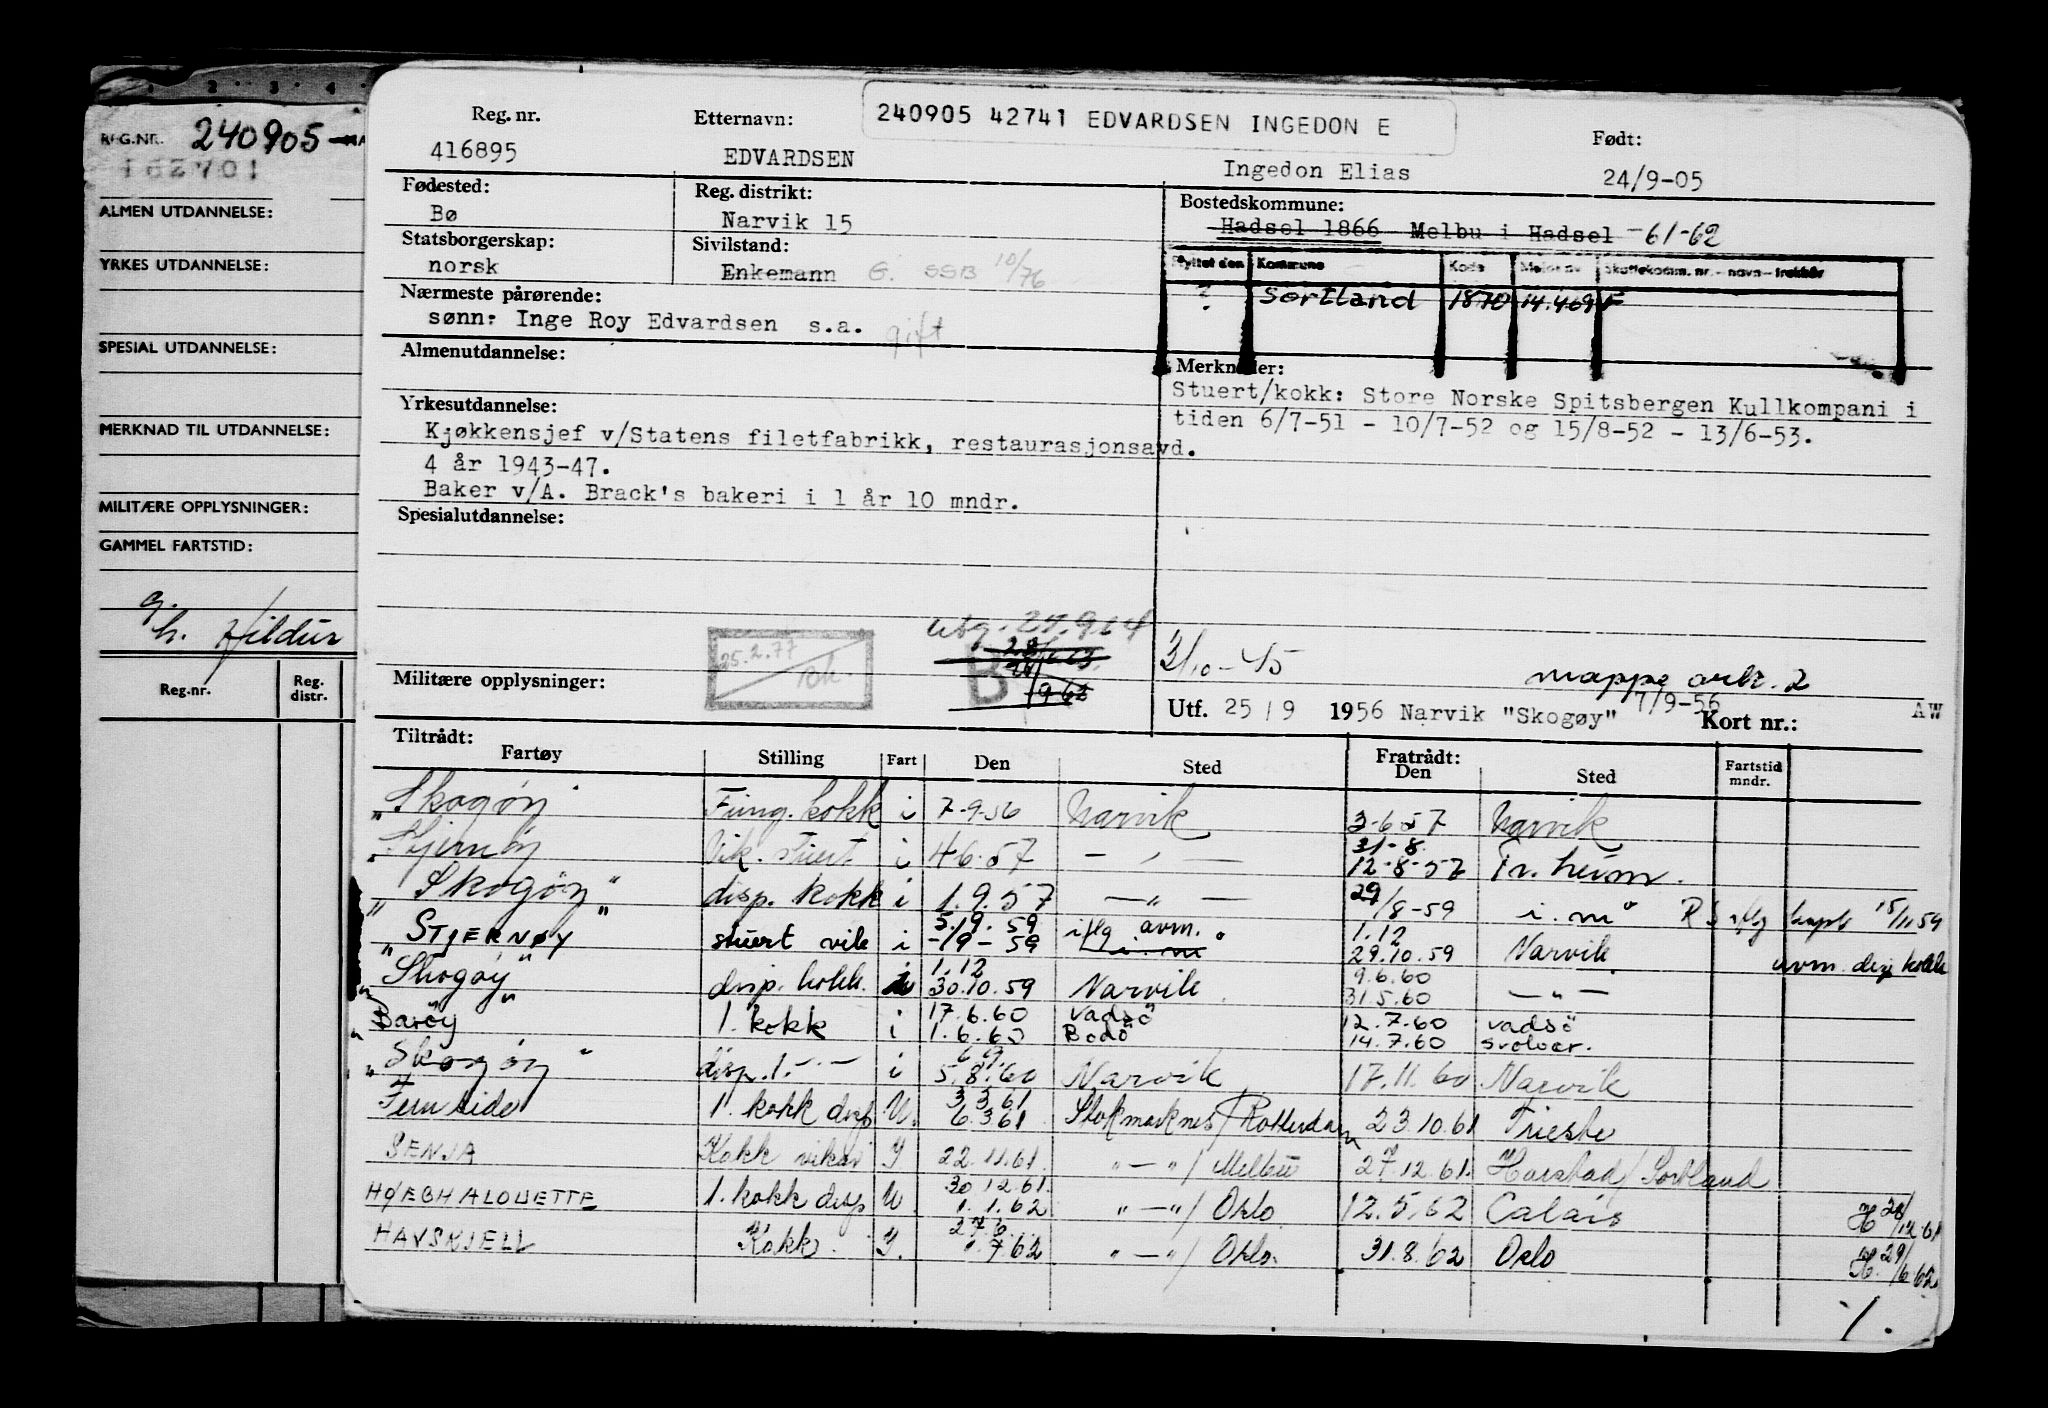 REG.NR. 240905
ALMEN UTDANNELSE:
YRKES UTDANNELSE:
SPESIAL UTDANNELSE:
MERKNAD TIL UTDANNELSE:
MILITÆRE OPPLYSNINGER:
GAMMEL FARTSTID:
g.
h. Hildur
Reg.nr. Reg. distr.
240905 42741 EDVARDSEN INGEDON E
Reg. nr. Etternavn: Født:
416895 EDVARDSEN Ingedon Elias 24/9-05
Fødested: Reg. distrikt: Bostedskommune:
Bø Narvik 15 Hadsel 1866 Melbu i Hadsel -61-62
Statsborgerskap: Sivilstand:
norsk Enkemann G. SSB 10/76
Flyttet den Kommune Kode Meldt nv Skattekomm. nr. - navn - trekkår
? Sortland 1870 14.4.69 F
Nærmeste pårørende:
sønn: Inge Roy Edvardsen s.a. gift
Almenutdannelse:
Merknader:
Stuert/kokk: Store Norske Spitsbergen Kullkompani i
tiden 6/7-51 - 10/7-52 og 15/8-52 - 13/6-53.
Yrkesutdannelse:
Kjøkkensjef v/Statens filetfabrikk, restaurasjonsavd.
4 år 1943-47.
Baker v/A. Brack's bakeri i 1 år 10 mndr.
Spesialutdannelse:
utg. 9 64
25.2.77
B
3/10-45
mappe ark. 2
Militære opplysninger:
7/9-56
Utf. 25/9 1956 Narvik "Skogøy" Kort nr.: AW
Tiltrådt: Fratrådt:
Fartøy Stilling Fart Den Sted Den Sted Fartstid mndr.
"Skogøy" Fung. kokk i 7-9-56 Narvik 3-6-57 Narvik
"Stjernøy Vik. stuert i 4-6-57 — " — 31-8. 12-8-57 Tr.heim.
"Skogøy" disp. kokk i 1.9.57 — " — 29/8-59 i.m. 15/11 59
"STJERNØY" stuert vik i 5/9. 59 -/9-59 iflg avm. i.m 1.12 29.10.59 Narvik avm. disp kokk
"Skogøy" disp. kokk. i 1.12 30.10.59 Narvik 9.6.60 31.5.60 — " —
"Barøy" 1. kokk i 17.6.60 1.6.60 Vadsö Bodö 12.7.60 14.7.60 Vadsö Svolvær.
"Skogøy" disp. 1. - " - i 5.8.60 Narvik 17.11.60 Narvik
Fernside 1. kokk disp U. 3.3.61 6.3.61 Stokmarknes/Rotterdam 23.10.61 Trieste
SENJA Kokk vikar I 22.11.61. " — "/Melbu 27.12.61. Harstad/Sortland
HØEGH ALOUETTE 1. kokk disp U. 30.12.61. 1.1.62 " — "/Oslo 12.5.62 Calais 28/12 61
HAVSKJELL Kokk. I. 7 62 " — "/Oslo. 31.8.62 Oslo 29/6 62
1.